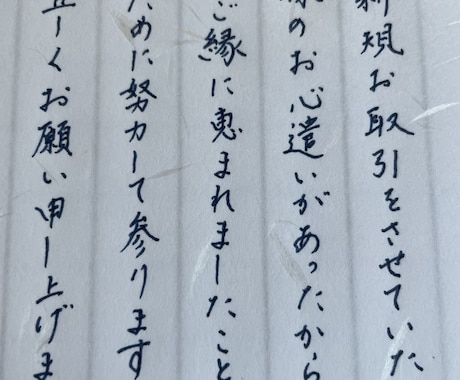 新規お取引をさせていた
様のお心遣いがあったから
ご縁に恵まれましたこと
ために努力して参ります
宜しくお願い申し上げま